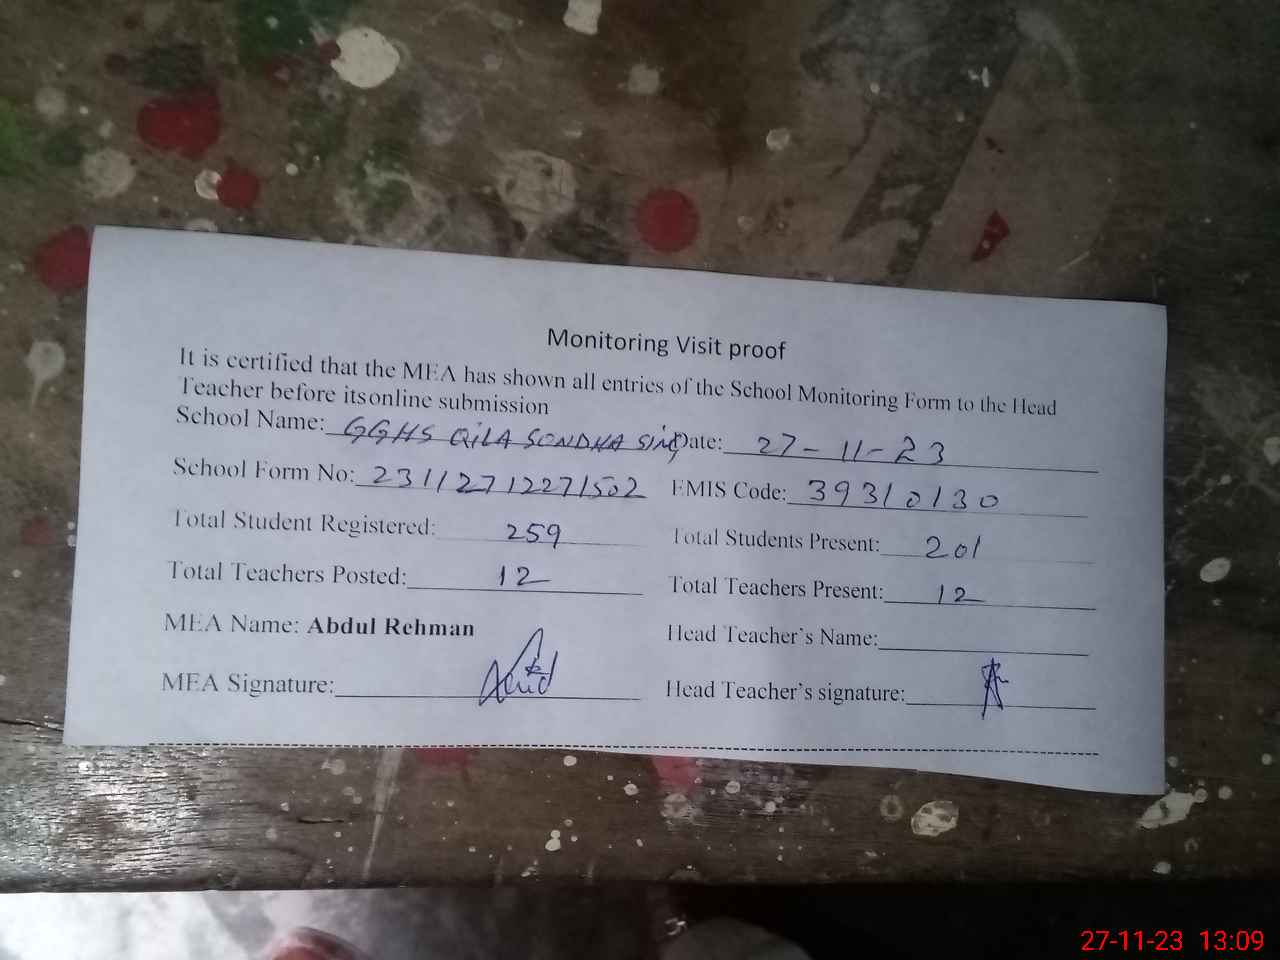 Monitoring Visit proof
It is certified that the MEA has shown all entries of the School Monitoring Form to the Head
Teacher before itsonline submission
School Name: GGHS QILA SONDHA SING Date: 27-11-23
School Form No: 23112712271502 EMIS Code: 39310130
Total Student Registered: 259 Total Students Present: 201
Total Teachers Posted: 12 Total Teachers Present: 12
MEA Name: Abdul Rehman Head Teacher's Name:
MEA Signature: Head Teacher's signature:
27-11-23 13:09